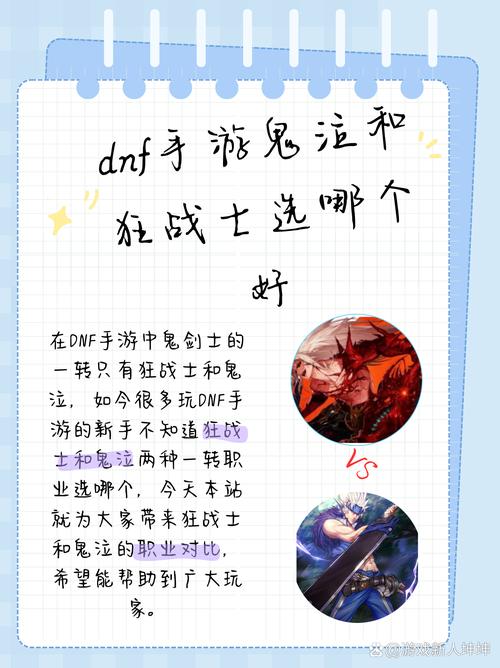 dnf手游鬼泣和
狂战士选哪个
好
在DNF手游中鬼剑士的
一转只有狂战士和鬼
泣，如今很多玩DNF手
游的新手不知道狂战
士和鬼泣两种一转职
业选哪个，今天本站
就为大家带来狂战士
和鬼泣的职业对比，
希望能帮助到广大玩
家。
VS
@游戏新人坤坤